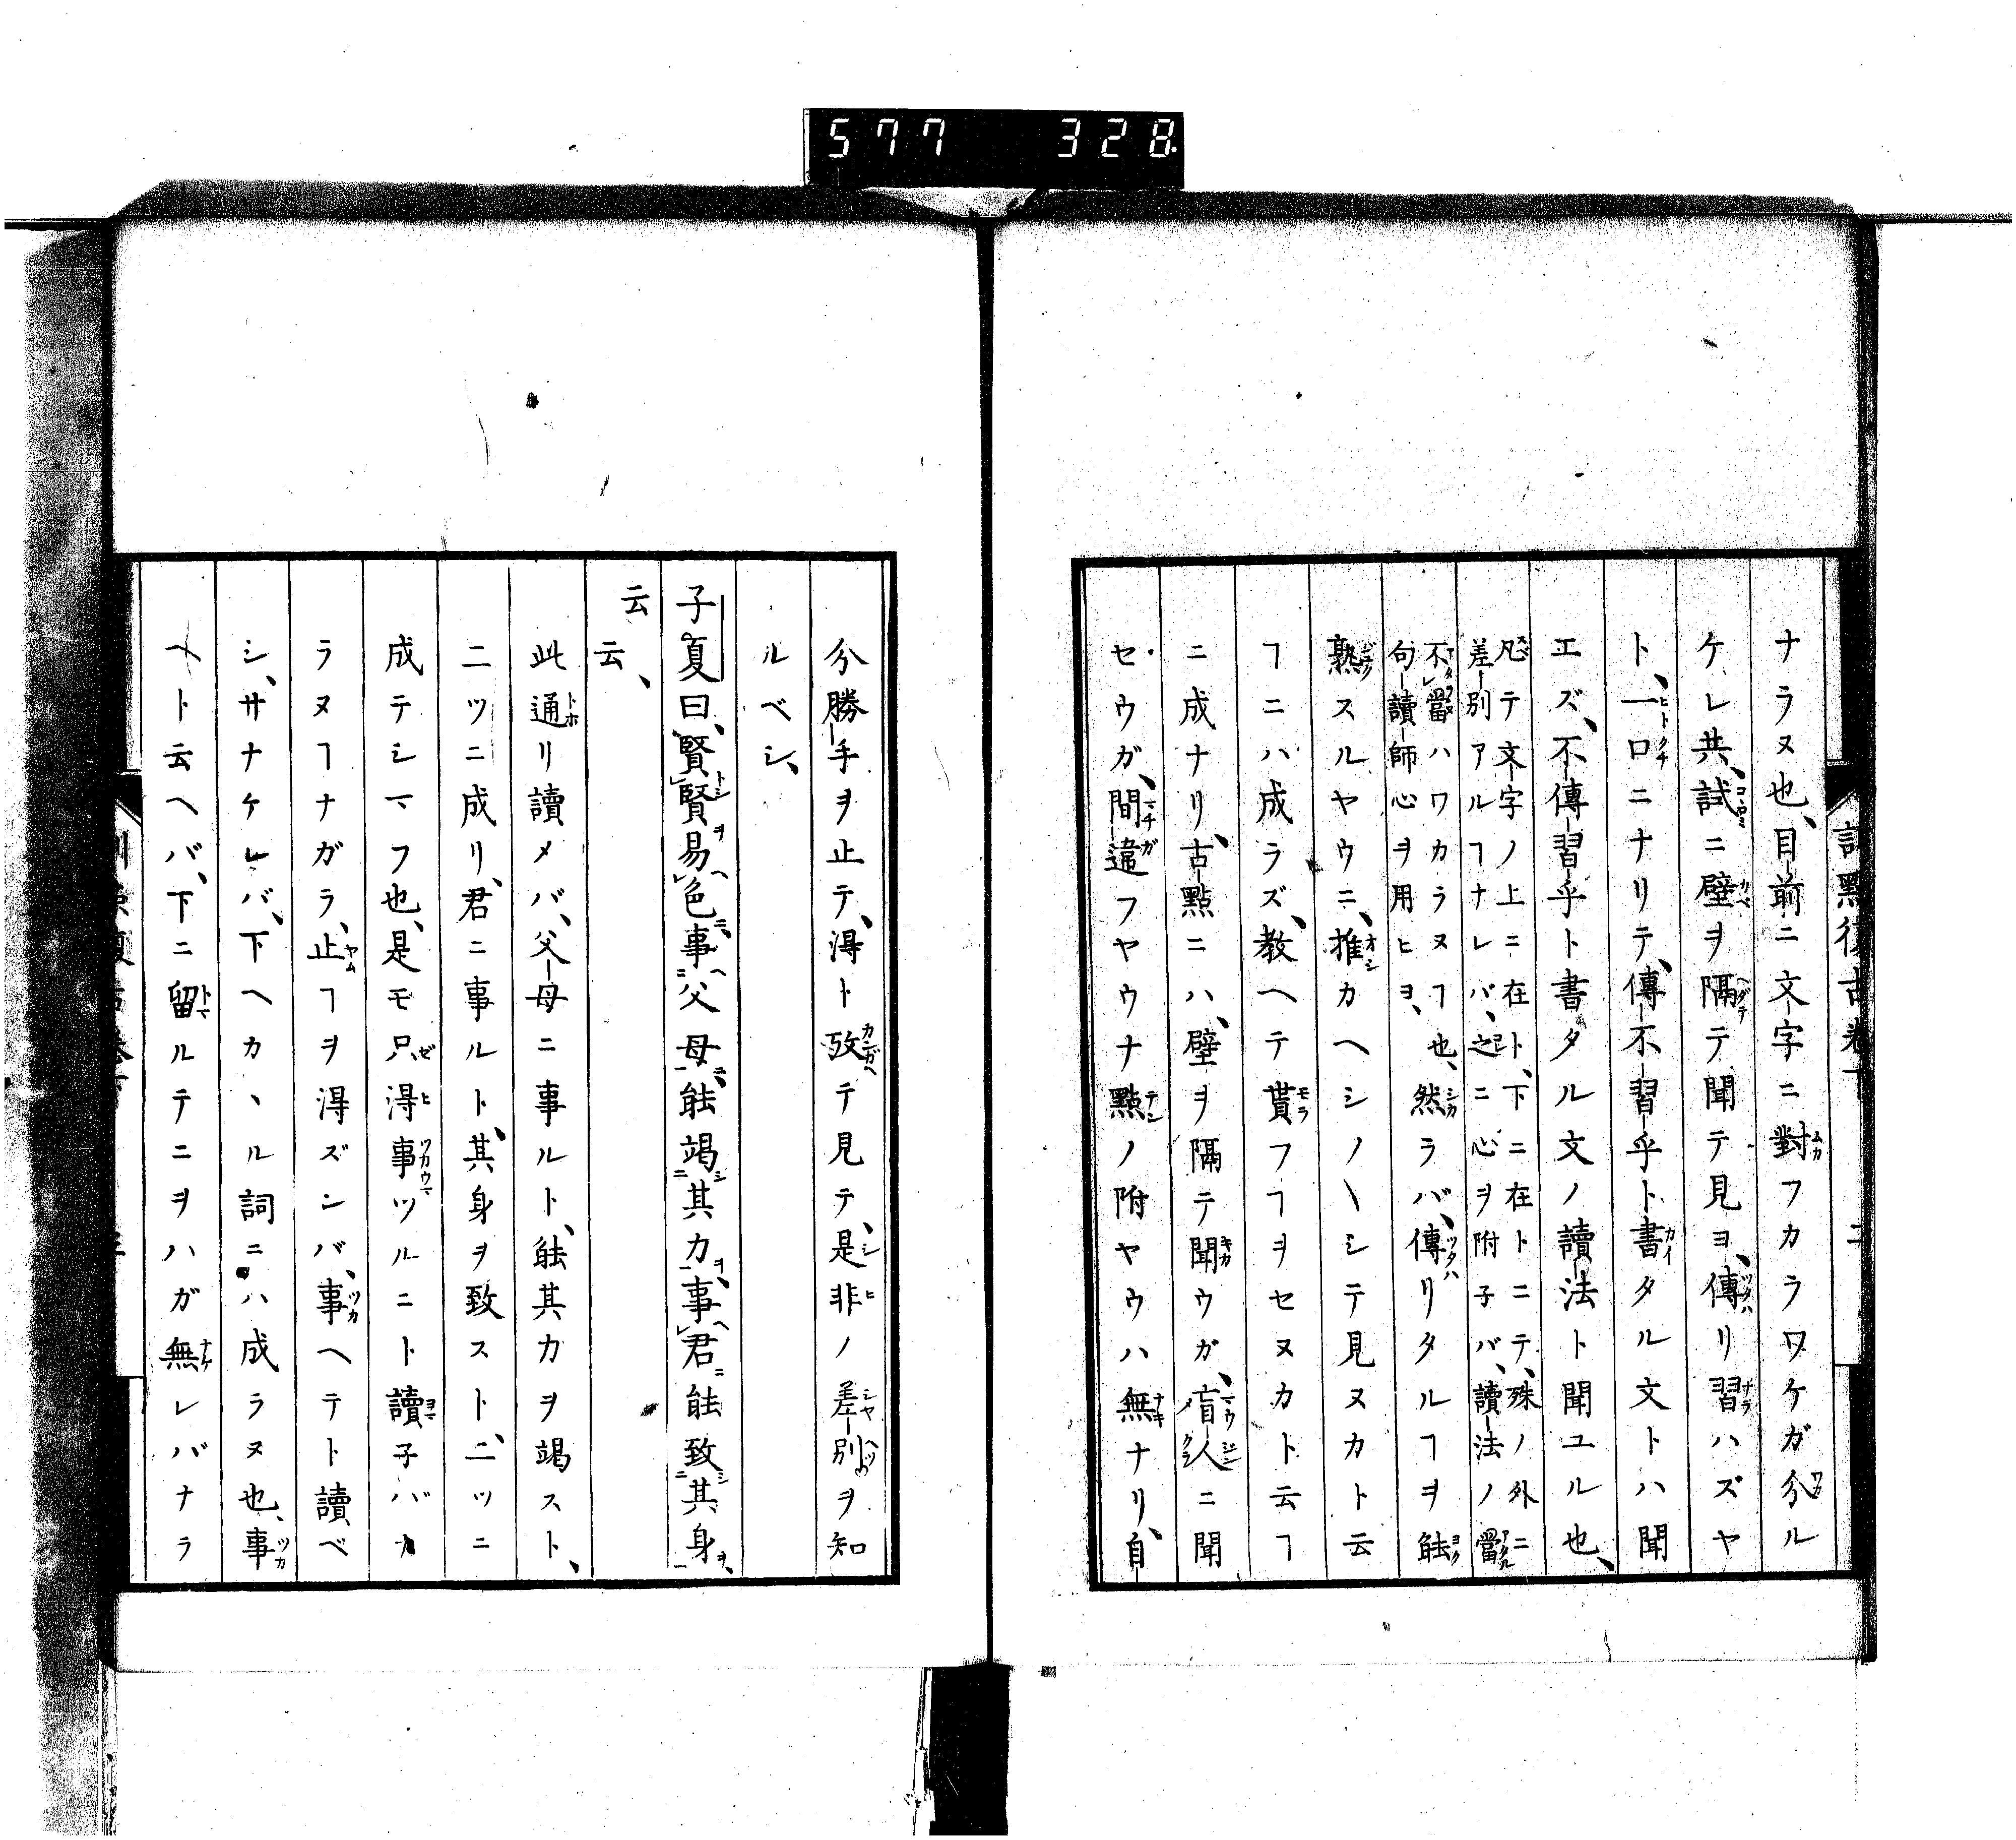 577 328
訓點復古卷下 二
ナラヌ也、目前ニ文字ニ對フカラワケガ分ル
ケレ共、試ニ壁ヲ隔テ聞テ見ヨ、傳リ習ハズヤ
ト、一口ニナリテ、傳不習乎ト書タル文トハ聞
エズ、不傳習乎ト書タル文ノ讀法ト聞ユル也、
凡テ文字ノ上ニ在ト、下ニ在トニテ、殊ノ外ニ
差別アルヿナレバ、之ニ心ヲ附子バ、讀法ノ當
不當ハワカラヌヿ也、然ラバ、傳リタルヿヲ能
句讀師心ヲ用ヒヲ、
熟スルヤウニ、推カヘシ〳〵シテ見ヌカト云
ヿニハ成ラズ、教ヘテ貰フヿヲセヌカト云ヿ
ニ成ナリ、古點ニハ、壁ヲ隔テ聞ウガ、盲人ニ聞
セウガ、間違フヤウナ點ノ附ヤウハ無ナリ、自
分勝手ヲ止テ、得ト攷テ見テ、是非ノ差別ヲ知
ルベシ、
子夏曰、賢賢易色、事父母能竭其力、事君能致其身、
云云、
此通リ讀メバ、父母ニ事ルト、能其力ヲ竭スト、
二ツニ成リ、君ニ事ルト、其身ヲ致スト、二ツニ
成テシマフ也、是モ只、得事ツルニト讀子バナ
ラヌヿナガラ、止ヿヲ得ズンバ、事ヘテト讀ベ
シ、サナケレバ、下ヘカヽル詞ニハ成ラヌ也、事
ヘト云ヘバ、下ニ留ルテニヲハガ無レバナラ